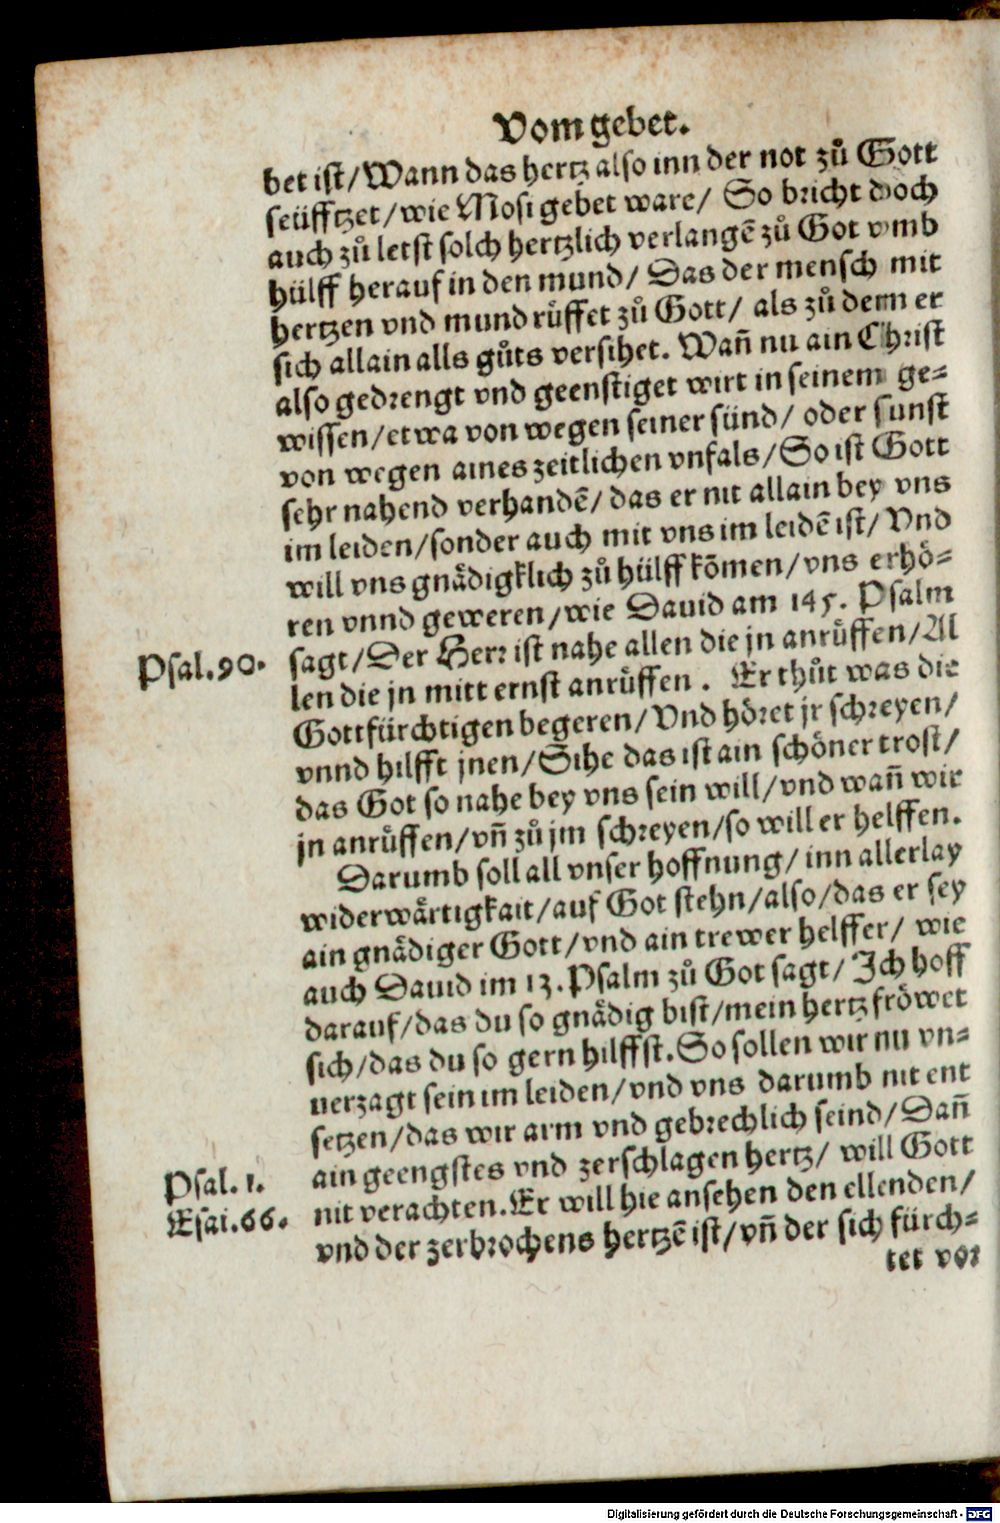 Vom gebet.
bet ist/Wann das hertz also inn der not zů Gott
seüfftzet/wie Mosi gebet ware/ So bricht doch
auch zů letst solch hertzlich verlangē zů Got vmb
hülff herauf in den mund/ Das der mensch mit
hertzen vnd mund růffet zů Gott/ als zů dem er
sich allain alls gůts versihet. Wañ nu ain Christ
also gedrengt vnd geenstiget wirt in seinem ge-
wissen/etwa von wegen seiner sünd/ oder sunst
von wegen aines zeitlichen vnfals/So ist Gott
sehr nahend verhandē/ das er nit allain bey vns
im leiden/sonder auch mit vns im leidē ist/ Vnd
will vns gnådigklich zů hülff kōmen/vns erhö-
ren vnnd geweren/wie Dauid am 145. Psalm
Psal.90. sagt/Der Herr ist nahe allen die jn anrůffen/Al
len die jn mitt ernst anrůffen . Er thůt was die
Gottfürchtigen begeren/Vnd höret jr schreyen/
vnnd hilfft jnen/Sihe das ist ain schöner trost/
das Got so nahe bey vns sein will/vnd wañ wir
jn anrůffen/vñ zů jm schreyen/so will er helffen.
Darumb soll all vnser hoffnung/ inn allerlay
widerwårtigkait/auf Got stehn/also/das er sey
ain gnådiger Gott/vnd ain trewer helffer/ wie
auch Dauid im 13. Psalm zů Got sagt/ Ich hoff
darauf/das du so gnådig bist/mein hertz fröwet
sich/das du so gern hilffst. So sollen wir nu vn-
uerzagt sein im leiden/vnd vns darumb nit ent
setzen/das wir arm vnd gebrechlich seind/Dañ
Psal. 1. ain geengstes vnd zerschlagen hertz/ will Gott
Esai.66. nit verachten. Er will hie ansehen den ellenden/
vnd der zerbrochens hertzē ist/vñ der sich fürch-
tet vor
Digitalisierung gefördert durch die Deutsche Forschungsgemeinschaft - DFG